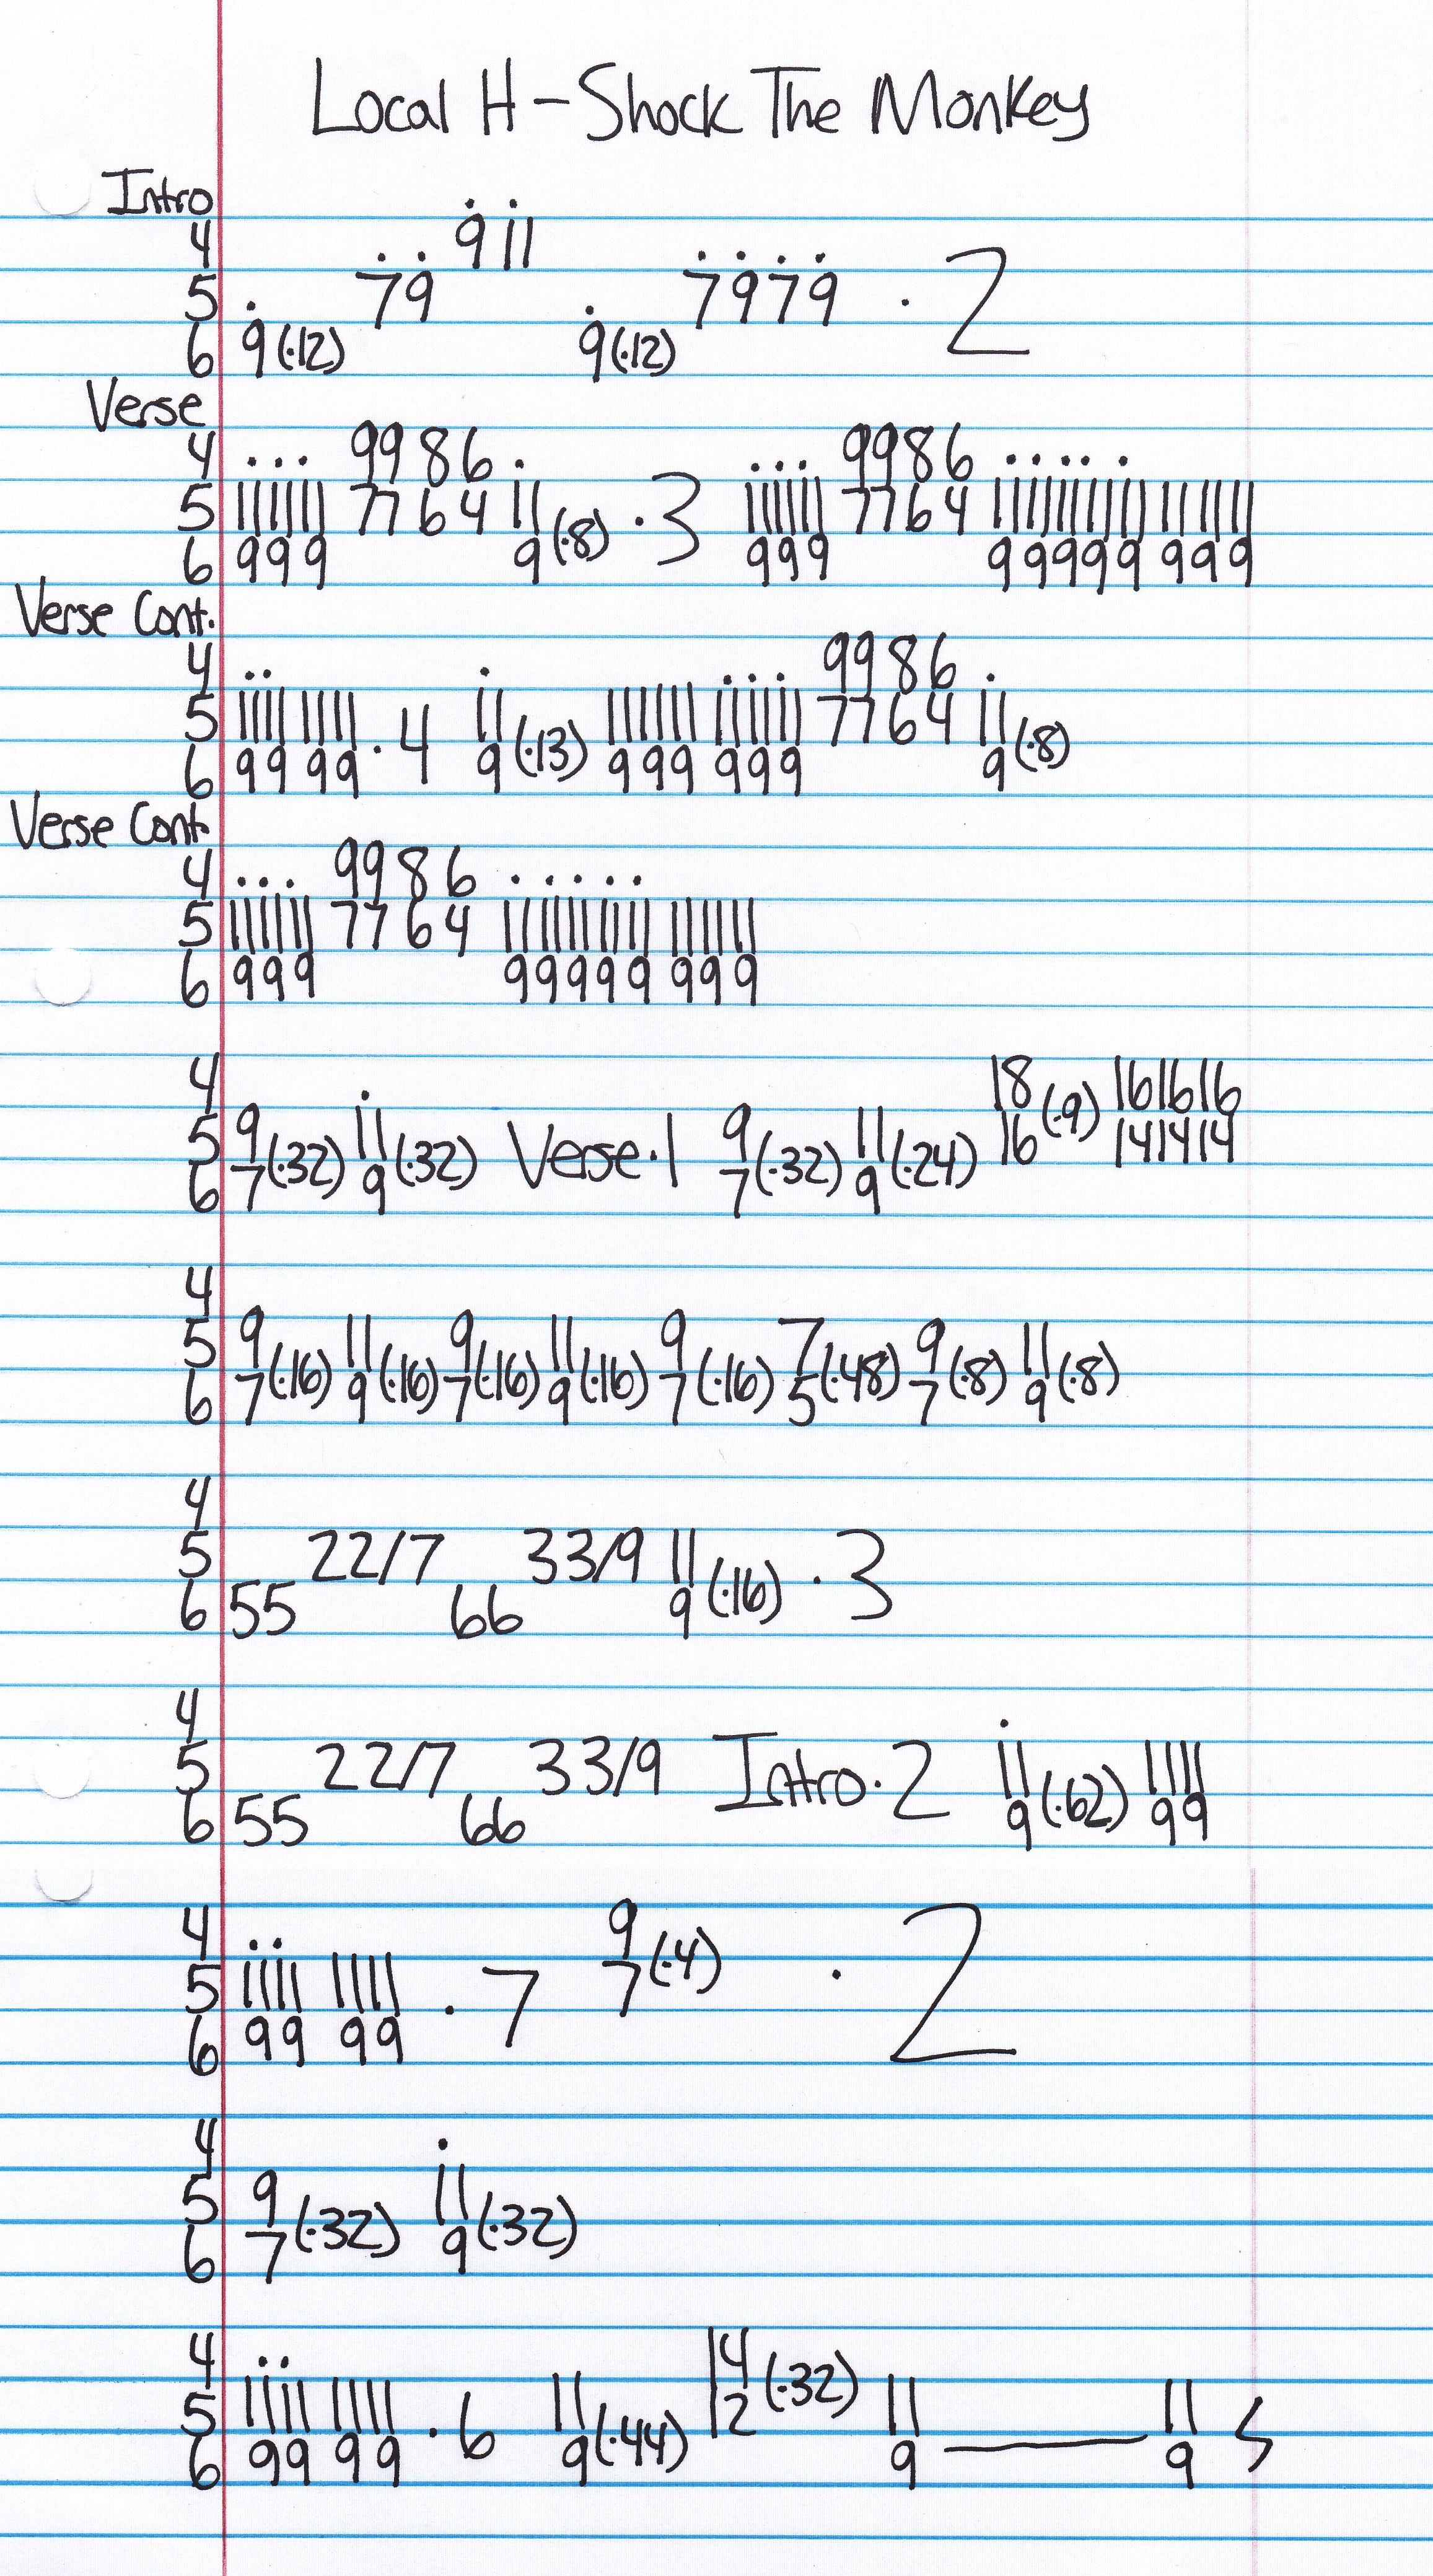 Local H - Shock The Monkey
Intro
4 9 11
5 79 7979 · 2
6 9(·12) 9(·12)
Verse
4 ... 9986 . ... 9986 .....
5 111111 7764 11 · 3 111111 7764 1111111111 111111
6 999 9(·8) 999 99999 999
Verse Cont.
4 .. . .... 9986 .
5 1111 1111 · 4 11 111111 111111 7764 11
6 99 99 9(·13) 999 999 9(·8)
Verse Cont.
4 ... 9986 .....
5 111111 7764 1111111111 111111
6 999 99999 999
4 18(·9) 161616
5 9 11 Verse·1 9 11 16 141414
6 7(·32) 9(·32) 7(·32) 9(·24)
4
5 9 11 9 11 9 7 9 11
6 7(·16) 9(·16) 7(·16) 9(·16) 7(·16) 5(·48) 7(·8) 9(·8)
4
5 22/7 33/9 11
6 55 66 9(·16) · 3
4
5 22/7 33/9 Intro·2 11 1111
6 55 66 9(·62) 99
4 .. 9
5 1111 1111 · 7 7(·4) · 2
6 99 99
4
5 9 11
6 7(·32) 9(·32)
4 .. 14
5 1111 1111 · 6 11 12(·32) 11 11
6 99 99 9(·44) 9 — 9